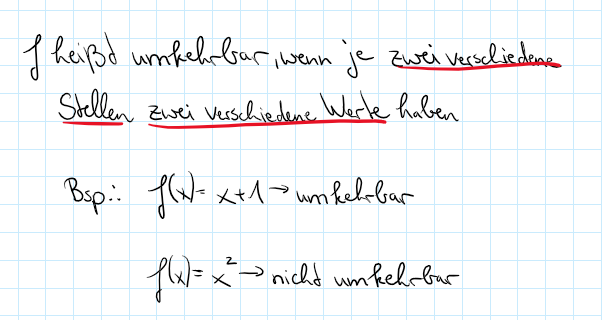 f heißt umkehrbar, wenn je zwei verschiedene
Stellen zwei verschiedene Werte haben
Bsp.: f(x)= x+1 → umkehrbar
f(x)= x² → nicht umkehrbar